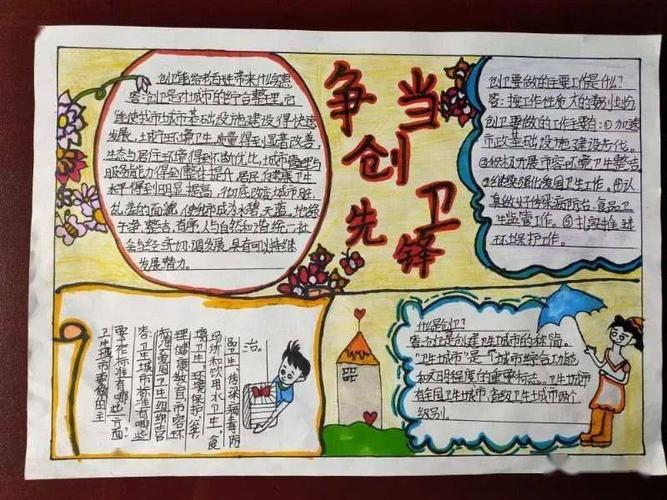 争当
创卫
先锋
创卫能给老百姓带来什么实惠
答:创卫是对城市的综合整理,可
能使我市城市基础设施建设得快速
发展,土城市环境卫生质量得到显著改善,
生态与居住环境得到不断优化,城市管理与
服务能力得到整体提升,居民身健康卫生
水平得到明显提高,彻底改变城市脏,
乱差的面貌,使城市成为水碧天蓝,地绿
干净,整洁,有序,人与自然和谐统一,社
会与经济切调发展,具有可以持续
发展潜力。
创卫要做的主要工作是什么?
答:按工作性质大的划分
创卫要做的工作主要有:①加速
市政基础设施建设步伐。
②积极开展市容环境卫生整吉
③继续强化爱国卫生工作。④认
真做好传染病防治,食品卫
生监管工作。⑤扎段推进
环境保护工作。
卫生城市要做的主
要工作标准有哪些方面?
答:卫生城市标准有哪些
标准:爱国卫生组织管
理健康教育,市容环
境卫生,环境保护,公共
场所和饮用水卫生,食
品卫生,传染病毒防
治。
什么是创卫?
答:创卫是创建卫生城市的简称。
"卫生城市"是一个城市综合功能
和文明程度的重要标志。卫生城市
有全国卫生城市,省级卫生城市两个
级别。